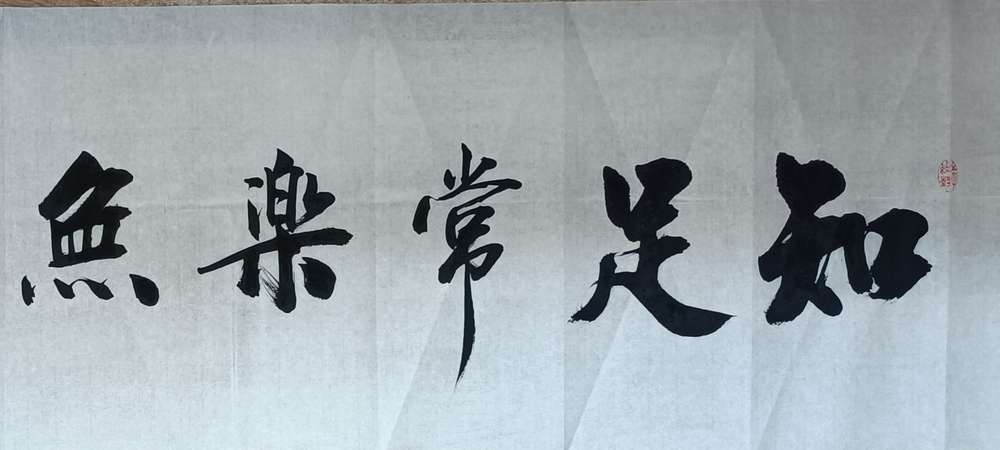 知足常樂無